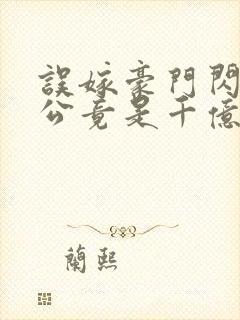 誤嫁豪門閃
公竟是千億
蘭熙